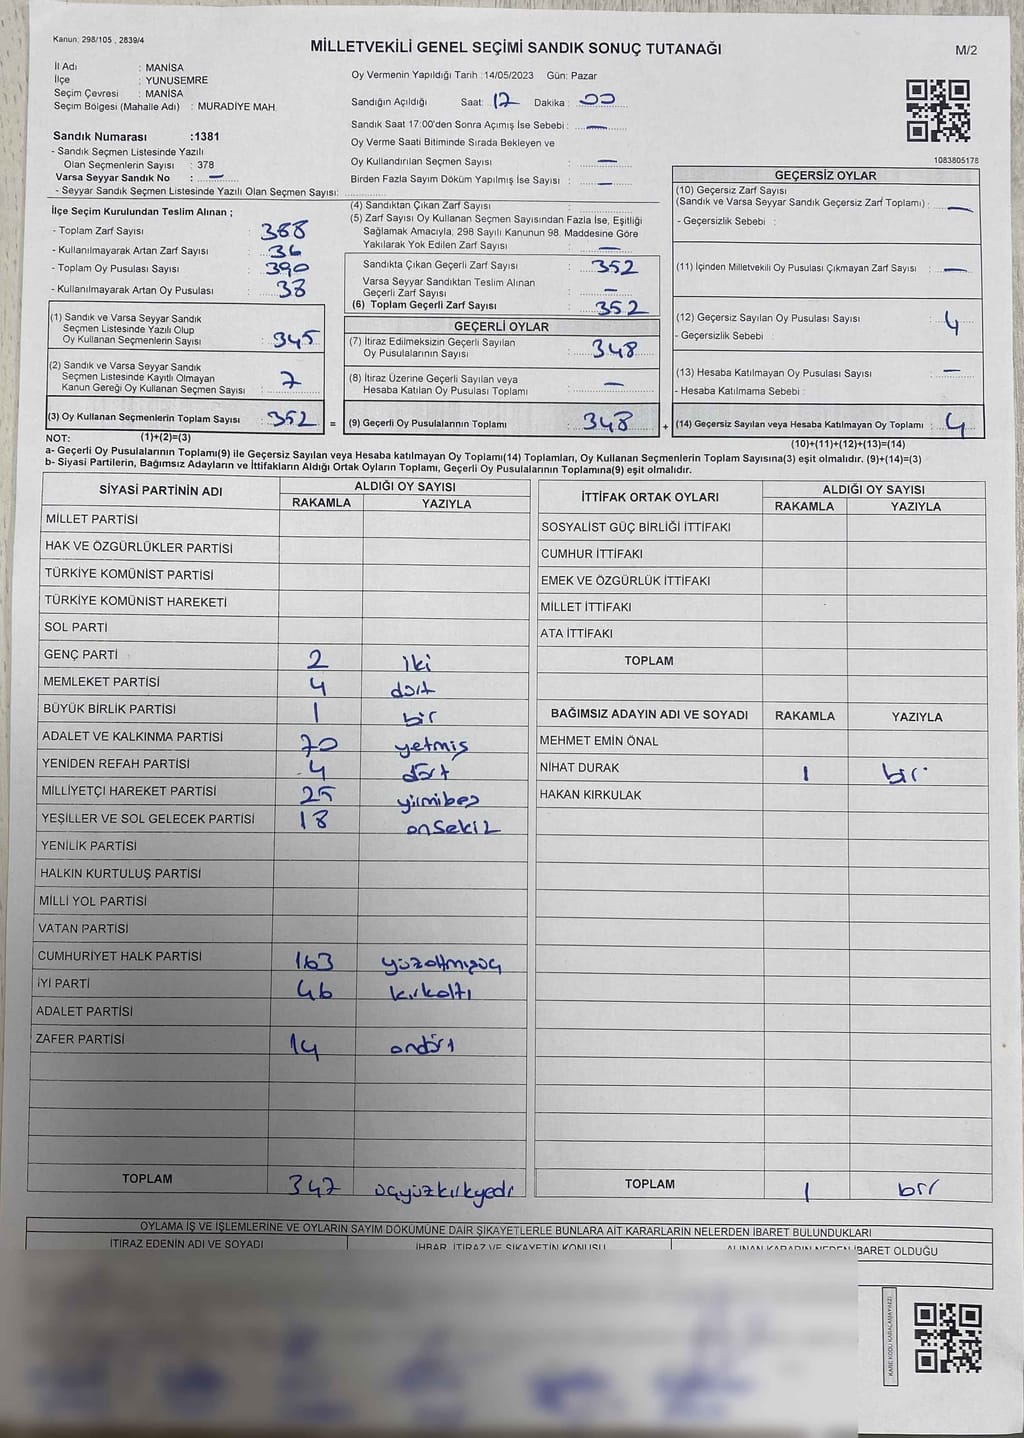 Kanun; 298/105 , 2839/4
MİLLETVEKİLİ GENEL SEÇİMİ SANDIK SONUÇ TUTANAĞI
M/2
İl Adı : MANİSA
İlçe : YUNUSEMRE
Seçim Çevresi : MANİSA
Seçim Bölgesi (Mahalle Adı) : MURADİYE MAH.
Oy Vermenin Yapıldığı Tarih :14/05/2023 Gün: Pazar
Sandığın Açıldığı Saat: 17 Dakika : 00
Sandık Saat 17:00'den Sonra Açımış İse Sebebi : —
Oy Verme Saati Bitiminde Sırada Bekleyen ve
Oy Kullandırılan Seçmen Sayısı : —
Birden Fazla Sayım Döküm Yapılmış İse Sayısı : —
1083805178
Sandık Numarası :1381
- Sandık Seçmen Listesinde Yazılı
Olan Seçmenlerin Sayısı : 378
Varsa Seyyar Sandık No : —
- Seyyar Sandık Seçmen Listesinde Yazılı Olan Seçmen Sayısı:
İlçe Seçim Kurulundan Teslim Alınan ;
- Toplam Zarf Sayısı : 388
- Kullanılmayarak Artan Zarf Sayısı : 36
- Toplam Oy Pusulası Sayısı : 390
- Kullanılmayarak Artan Oy Pusulası : 38
(1) Sandık ve Varsa Seyyar Sandık
Seçmen Listesinde Yazılı Olup
Oy Kullanan Seçmenlerin Sayısı : 345
(2) Sandık ve Varsa Seyyar Sandık
Seçmen Listesinde Kayıtlı Olmayan
Kanun Gereği Oy Kullanan Seçmen Sayısı : 7
(3) Oy Kullanan Seçmenlerin Toplam Sayısı : 352
(4) Sandıktan Çıkan Zarf Sayısı :
(5) Zarf Sayısı Oy Kullanan Seçmen Sayısından Fazla İse, Eşitliği
Sağlamak Amacıyla, 298 Sayılı Kanunun 98. Maddesine Göre
Yakılarak Yok Edilen Zarf Sayısı : —
Sandıkta Çıkan Geçerli Zarf Sayısı : 352
Varsa Seyyar Sandıktan Teslim Alınan
Geçerli Zarf Sayısı : —
(6) Toplam Geçerli Zarf Sayısı : 352
GEÇERLİ OYLAR
(7) İtiraz Edilmeksizin Geçerli Sayılan
Oy Pusulalarının Sayısı : 348
(8) İtiraz Üzerine Geçerli Sayılan veya
Hesaba Katılan Oy Pusulası Toplamı : —
= (9) Geçerli Oy Pusulalarının Toplamı : 348
GEÇERSİZ OYLAR
(10) Geçersiz Zarf Sayısı
(Sandık ve Varsa Seyyar Sandık Geçersiz Zarf Toplamı) : —
- Geçersizlik Sebebi :
(11) İçinden Milletvekili Oy Pusulası Çıkmayan Zarf Sayısı : —
(12) Geçersiz Sayılan Oy Pusulası Sayısı : 4
- Geçersizlik Sebebi :
(13) Hesaba Katılmayan Oy Pusulası Sayısı : —
- Hesaba Katılmama Sebebi :
+ (14) Geçersiz Sayılan veya Hesaba Katılmayan Oy Toplamı : 4
NOT: (1)+(2)=(3)
(10)+(11)+(12)+(13)=(14)
a- Geçerli Oy Pusulalarının Toplamı(9) ile Geçersiz Sayılan veya Hesaba katılmayan Oy Toplamı(14) Toplamları, Oy Kullanan Seçmenlerin Toplam Sayısına(3) eşit olmalıdır. (9)+(14)=(3)
b- Siyasi Partilerin, Bağımsız Adayların ve İttifakların Aldığı Ortak Oyların Toplamı, Geçerli Oy Pusulalarının Toplamına(9) eşit olmalıdır.
SİYASİ PARTİNİN ADI ALDIĞI OY SAYISI
RAKAMLA YAZIYLA
MİLLET PARTİSİ
HAK VE ÖZGÜRLÜKLER PARTİSİ
TÜRKİYE KOMÜNİST PARTİSİ
TÜRKİYE KOMÜNİST HAREKETİ
SOL PARTİ
GENÇ PARTİ 2 iki
MEMLEKET PARTİSİ 4 dört
BÜYÜK BİRLİK PARTİSİ 1 bir
ADALET VE KALKINMA PARTİSİ 70 yetmiş
YENİDEN REFAH PARTİSİ 4 dört
MİLLİYETÇİ HAREKET PARTİSİ 25 yirmibeş
YEŞİLLER VE SOL GELECEK PARTİSİ 18 onsekiz
YENİLİK PARTİSİ
HALKIN KURTULUŞ PARTİSİ
MİLLİ YOL PARTİSİ
VATAN PARTİSİ
CUMHURİYET HALK PARTİSİ 163 yüzaltmışüç
İYİ PARTİ 46 kırkaltı
ADALET PARTİSİ
ZAFER PARTİSİ 14 ondört
TOPLAM 347 üçyüzkırkyedi
İTTİFAK ORTAK OYLARI ALDIĞI OY SAYISI
RAKAMLA YAZIYLA
SOSYALİST GÜÇ BİRLİĞİ İTTİFAKI
CUMHUR İTTİFAKI
EMEK VE ÖZGÜRLÜK İTTİFAKI
MİLLET İTTİFAKI
ATA İTTİFAKI
TOPLAM
BAĞIMSIZ ADAYIN ADI VE SOYADI RAKAMLA YAZIYLA
MEHMET EMİN ÖNAL
NİHAT DURAK 1 bir
HAKAN KIRKULAK
TOPLAM 1 bir
OYLAMA İŞ VE İŞLEMLERİNE VE OYLARIN SAYIM DÖKÜMÜNE DAİR ŞİKAYETLERLE BUNLARA AİT KARARLARIN NELERDEN İBARET BULUNDUKLARI
İTİRAZ EDENİN ADI VE SOYADI İHBAR, İTİRAZ VE ŞİKAYETİN KONUSU ALINAN KARARIN NEDEN İBARET OLDUĞU